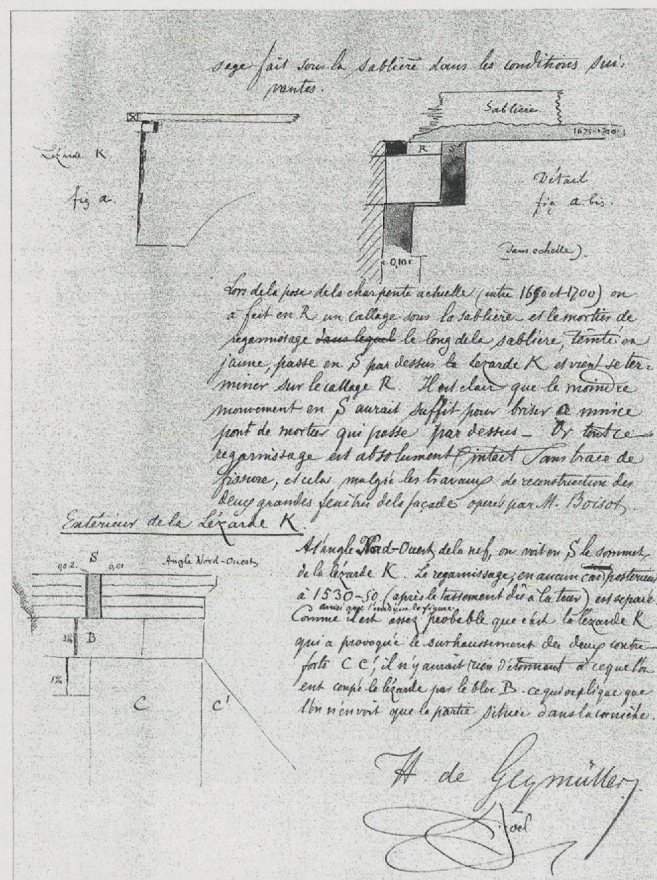 sage fait sous la sablière dans les conditions sui-
vantes.
Sablière
1675-1700
R
S
Lézarde K
fig a.
Détail
fig a bis.
(sans échelle).
0,10
Lors de la pose de la charpente actuelle (entre 1690 et 1700) on
a fait en R un callage sous la sablière et le mortier de
regarnissage dans lequel le long de la sablière, teinté en
jaune, passe en S par dessus la lézarde K et vient se ter-
miner sur le callage R. Il est clair que le moindre
mouvement en S aurait suffit pour briser ce mince
pont de mortier qui passe par dessus - Or tout ce
regarnissage est absolument intact sans trace de
fissure, et cela malgré les travaux de reconstruction des
deux grandes fenêtres de la façade opérés par M. Boisot.
Extérieur de la Lézarde K.
S
0,02
0,01
Angle Nord-Ouest
B
C
C'
A l'angle Nord-Ouest de la nef, on voit en S le sommet
de la lézarde K. Le regarnissage, en aucun cas postérieur
à 1530-50 (après le tassement dû à la tour) est séparé
ainsi que l'indique la figure
Comme il est assez probable que c'est la lézarde K
qui a provoqué le surhaussement des deux contre-
forts C C', il n'y aurait rien d'étonnant à ce que l'on
ent coupé la lézarde par le bloc B. ce qui explique que
l'on n'en voit que la partie située dans la corniche.
H. de Geymüller